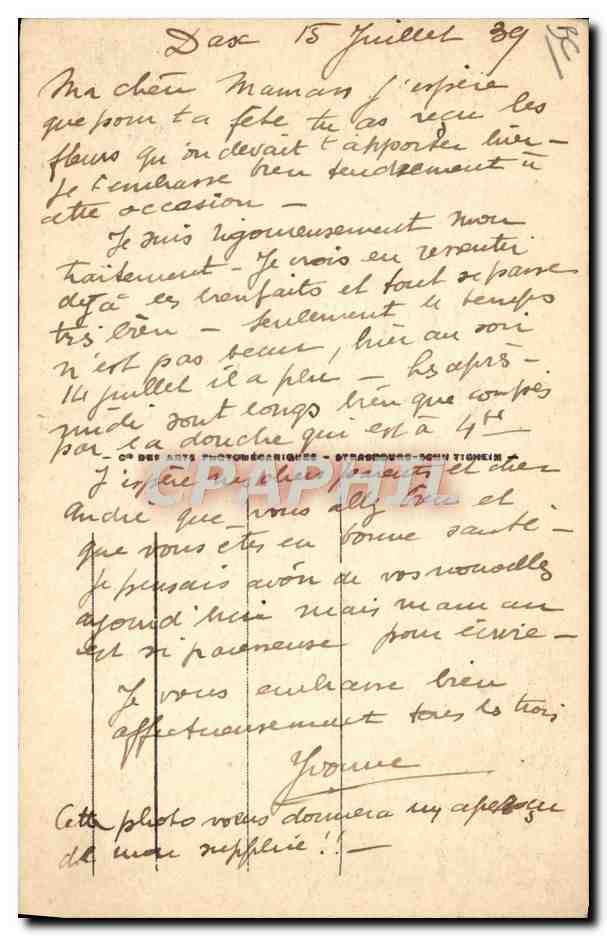 Dax 15 Juillet 39
BC
Ma chère Maman J'espère
que pour ta fête tu as reçu les
fleurs qu'on devait t'apporter hier -
Je t'embrasse bien tendrement à
cette occasion -
Je suis rigoureusement mon
traitement - Je crois en ressentir
déjà les bienfaits et tout se passe
très bien - Seulement le temps
n'est pas beau, hier au soir
14 juillet il a plu - Les après-
midi sont longs bien que coupés
par la douche qui est à 4h
- Cie DES ARTS PHOTOMÉCANIQUES - STRASBOURG-SCHILTIGHEIM -
CPAPHIL
J'espère mes chers parents et cher
André que vous allez bien et
que vous êtes en bonne santé -
Je pensais avoir de vos nouvelles
aujourd'hui mais maman
est si paresseuse pour écrire -
Je vous embrasse bien
affectueusement tous les trois
Yvonne
Cette photo vous donnera un aperçu
de mon supplice!! -